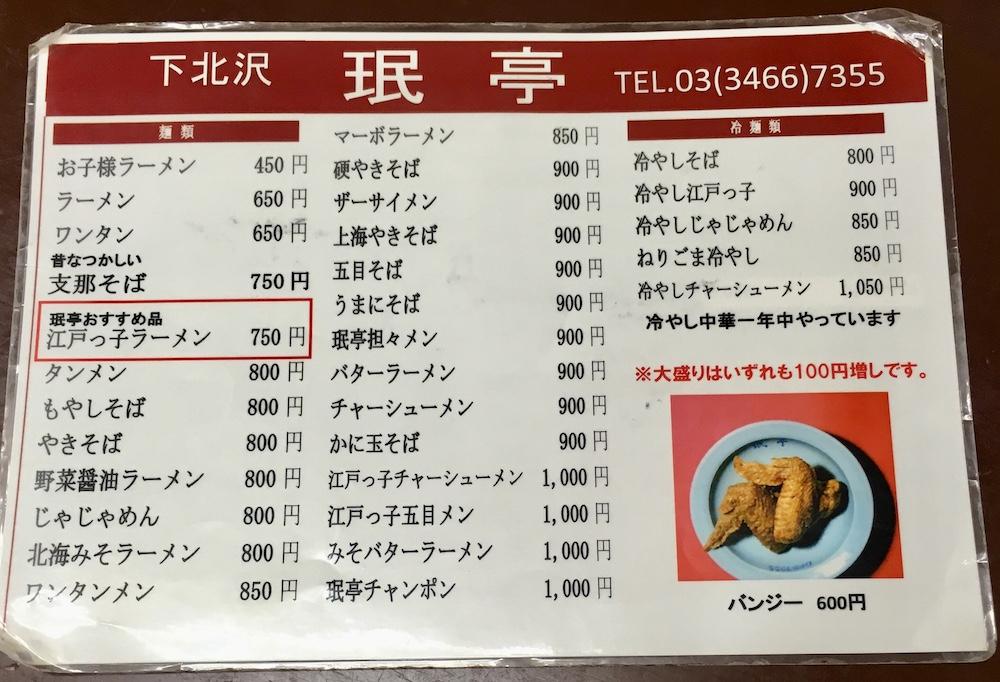 下北沢 珉亭 TEL.03(3466)7355
麺類
お子様ラーメン 450円
ラーメン 650円
ワンタン 650円
昔なつかしい
支那そば 750円
珉亭おすすめ品
江戸っ子ラーメン 750円
タンメン 800円
もやしそば 800円
やきそば 800円
野菜醤油ラーメン 800円
じゃじゃめん 800円
北海みそラーメン 800円
ワンタンメン 850円
マーボラーメン 850円
硬やきそば 900円
ザーサイメン 900円
上海やきそば 900円
五目そば 900円
うまにそば 900円
珉亭担々メン 900円
バターラーメン 900円
チャーシューメン 900円
かに玉そば 900円
江戸っ子チャーシューメン 1,000円
江戸っ子五目メン 1,000円
みそバターラーメン 1,000円
珉亭チャンポン 1,000円
冷麺類
冷やしそば 800円
冷やし江戸っ子 900円
冷やしじゃじゃめん 850円
ねりごま冷やし 850円
冷やしチャーシューメン 1,050円
冷やし中華一年中やっています
※大盛りはいずれも100円増しです。
バンジー 600円